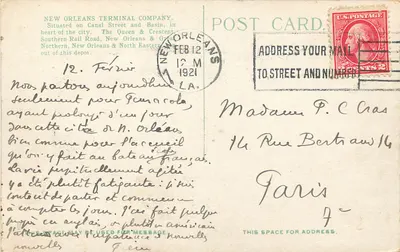 NEW ORLEANS TERMINAL COMPANY.
Situated on Canal Street and Basin, in
heart of the city. The Queen & Crescent
Southern Rail Road, New Orleans &
Northern, New Orleans & North Eastern
out of this depot.
POST CARD
NEW ORLEANS
FEB 12
12 M
1921
LA.
ADDRESS YOUR MAIL
TO STREET AND NUMBER
U.S. POSTAGE
CENTS 2
12. Février
Nous partons aujourd'hui
seulement pour Pensacola,
ayant prolongé d'un jour
dans cette cité de N. Orléans
bien comme pour l'accueil
qu'on y fait au bateau français.
La vie perpétuellement agitée
y a été plutôt fatigante: je suis
content de partir et commence
à compter les jours. J'ai fait quelque
en anglais, plutôt américain
nouvelles
Madame P. C Cras
14 Rue Bertrand 14
Paris
7e
BE USED FOR MESSAGE.
THIS SPACE FOR ADDRESS.